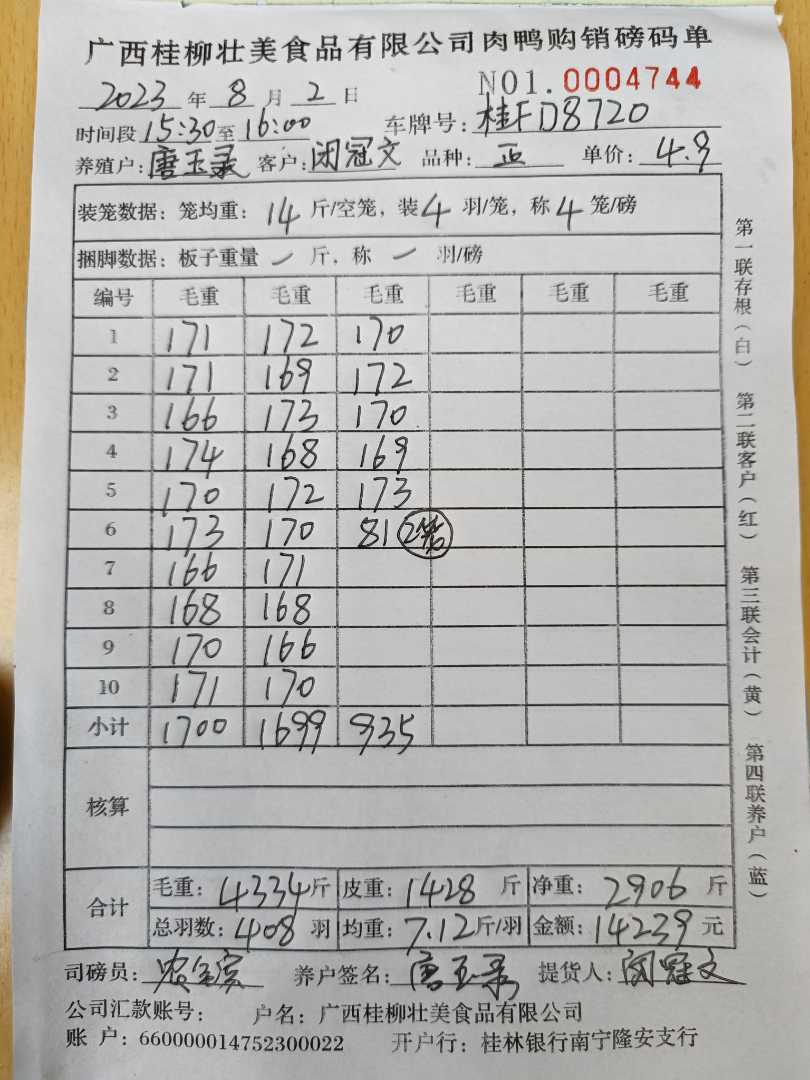 广西桂柳壮美食品有限公司肉鸭购销磅码单
2023 年 8 月 2 日 NO1.0004744
时间段 15:30 至 16:00 车牌号: 桂FD8720
养殖户: 唐玉录 客户: 闭冠文 品种: 正 单价: 4.9
装笼数据: 笼均重: 14 斤/空笼, 装 4 羽/笼, 称 4 笼/磅
捆脚数据: 板子重量 / 斤, 称 / 羽/磅
编号 毛重 毛重 毛重 毛重 毛重 毛重
1 171 172 170
2 171 169 172
3 166 173 170
4 174 168 169
5 170 172 173
6 173 170 81 2笼
7 166 171
8 168 168
9 170 166
10 171 170
小计 1700 1699 935
核算
合计 毛重: 4334 斤 皮重: 1428 斤 净重: 2906 斤
总羽数: 408 羽 均重: 7.12 斤/羽 金额: 14239 元
司磅员: 养户签名: 唐玉录 提货人: 闭冠文
公司汇款账号: 户名: 广西桂柳壮美食品有限公司
账 户: 660000014752300022 开户行: 桂林银行南宁隆安支行
第一联存根(白) 第二联客户(红) 第三联会计(黄) 第四联养户(蓝)